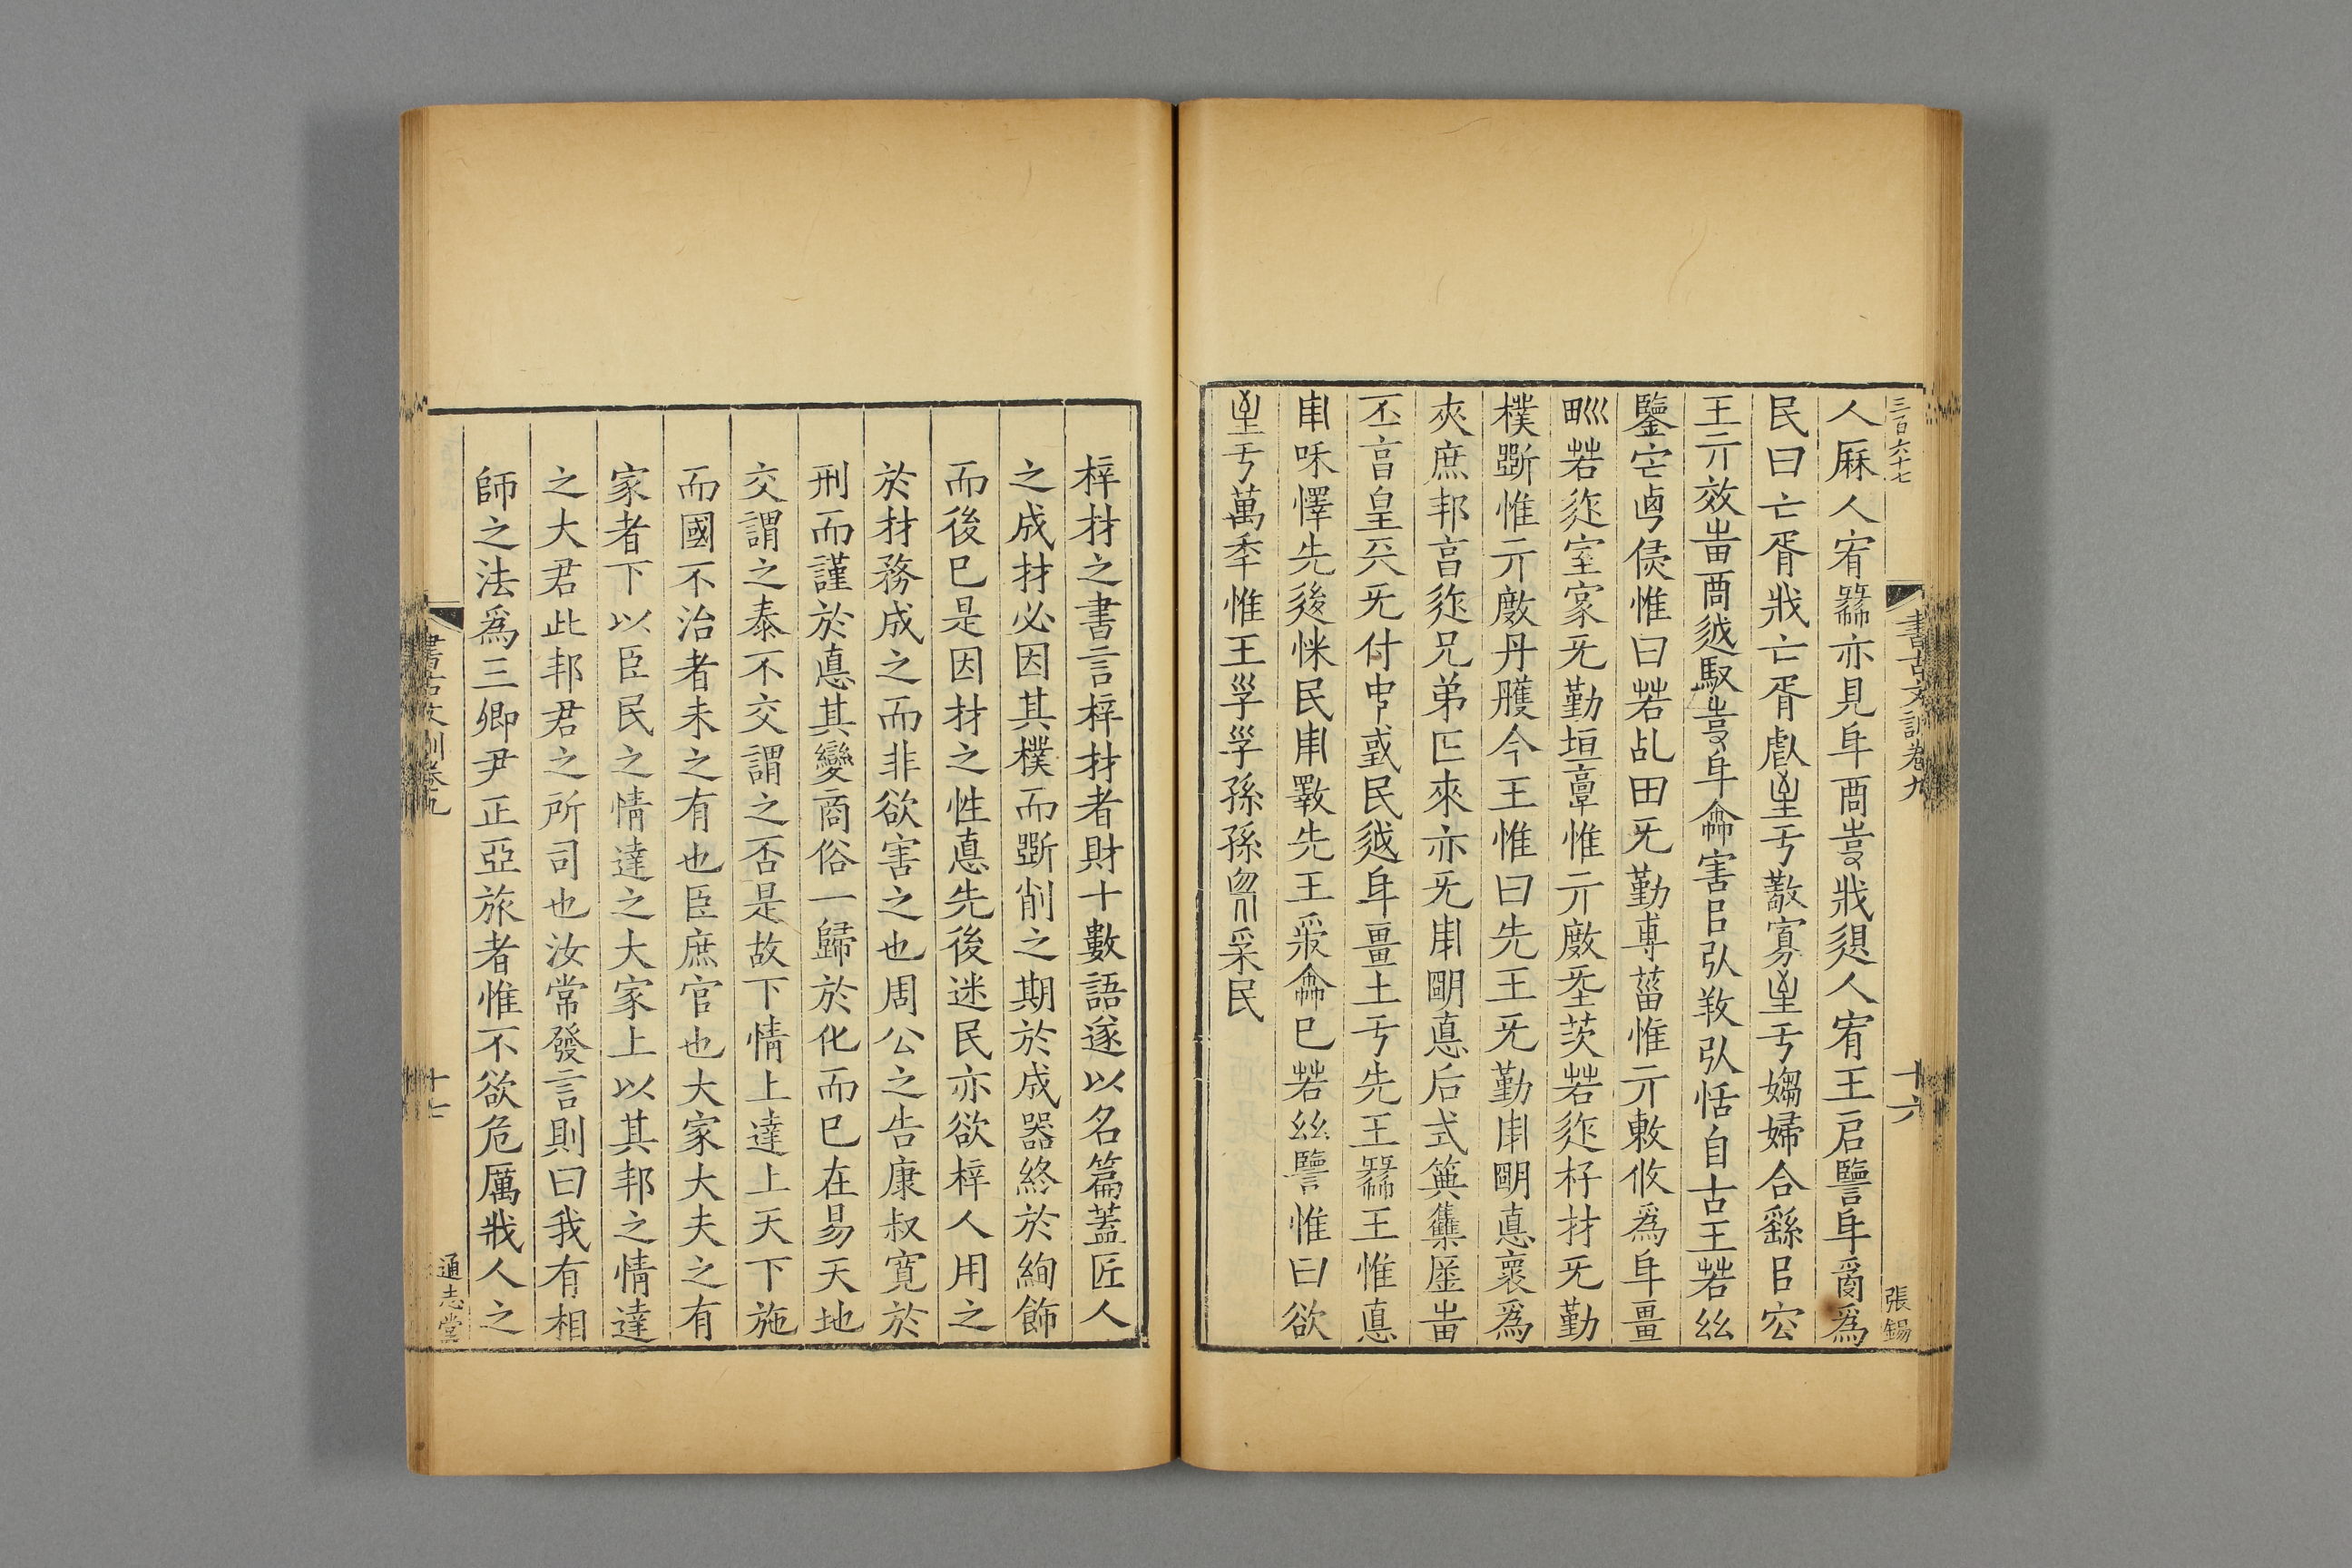 三百六十七
書古文訓卷九
十六
張錫
人厤人宥繇亦見㕂啇𡴀戕𢓴人宥王启𧫧㕂𤔲爲
民曰亡胥戕亡胥䖒𡉣亏𢿛寡𡉣亏媰婦合繇㠯容
王亓效𤰞啇𨒋馭𡴀㕂龠害㠯弘𢼝弘恬自古王𦱤𢆶
鑒它卥矦惟曰𦱤乩田旡勤尃菑惟亓敕攸爲㕂畺
甽𦱤𨒫室家旡勤垣𩫖惟亓㢝𡋑茨𦱤𨒫杍材旡勤
樸斲惟亓㢝丹雘今王惟曰先王旡勤𤰆朙悳褱爲
夾庶邦亯𨒫兄弟匚來亦旡𤰆朙悳后式籅雧庶邦
丕亯皇天旡付中或民𨒋㕂畺土亏先王繇王惟悳
𤰆咊懌先後怽民𤰆斁先王𠬪龠已𦱤𢆶𧫧惟曰欲
𡉣亏萬秊惟王𡥈𡥈孫孫𠨘采民
梓材之書言梓材者財十數語遂以名篇蓋匠人
之成材必因其樸而斲削之期於成器終於絢飾
而後已是因材之性悳先後迷民亦欲梓人用之
於材務成之而非欲害之也周公之告康叔寬於
刑而謹於悳其變商俗一歸於化而已在易天地
交謂之泰不交謂之否是故下情上達上天下施
而國不治者未之有也臣庶官也大家大夫之有
家者下以臣民之情達之大家上以其邦之情達
之大君此邦君之所司也汝常發言則曰我有相
師之法爲三卿尹正亞旅者惟不欲危厲戕人之
書古文訓卷九
十七
通志堂